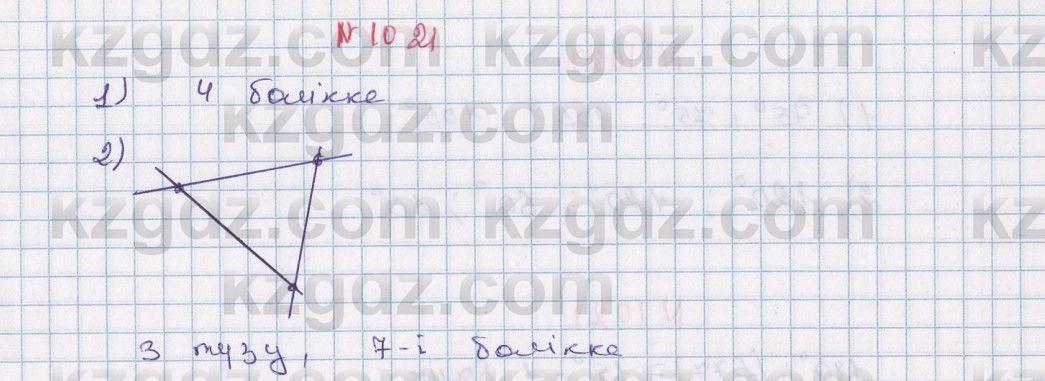 kzgdz.com kzgdz.com kz
№ 1021
1) 4 бөлікке
kzgdz.com
2)
kzgdz.com kzgdz.com kz
kzgdz.com
3 түзу, 7-і бөлікке
kzgdz.com kzgdz.com kz